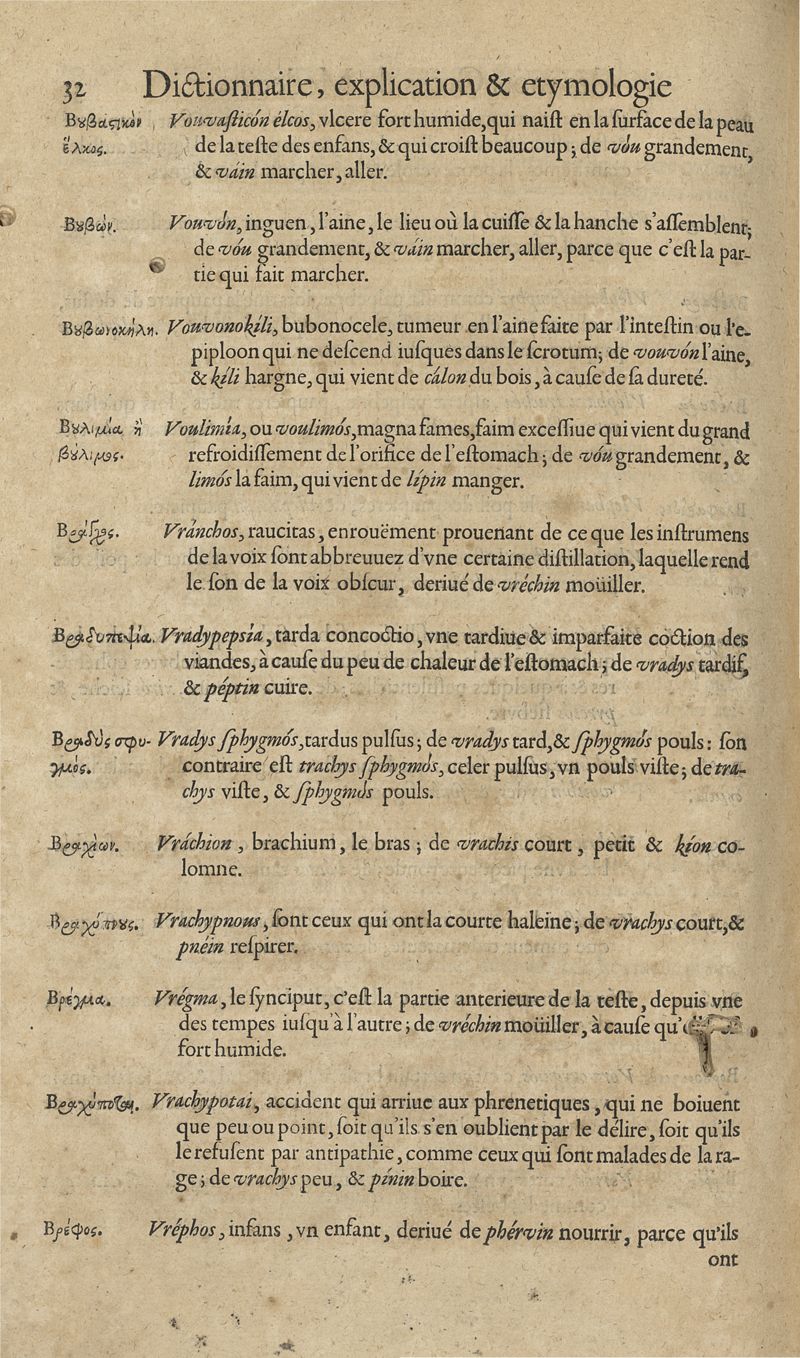 32 Dictionnaire, explication & etymologie
Βȣβαςικὸν Vouvaſticón élcos, vlcere fort humide, qui naiſt en la ſurface de la peau
ἕλκος. de la teſte des enfans, & qui croiſt beaucoup ; de vóu grandement,
& váin marcher, aller.
Βȣβών. Vouvón, inguen, l'aine, le lieu où la cuiſſe & la hanche s'aſſemblent;
de vóu grandement, & váin marcher, aller, parce que c'eſt la par-
tie qui fait marcher.
Βȣβωνοκήλη. Vouvonokíli, bubonocele, tumeur en l'aine faite par l'inteſtin ou l'e-
piploon qui ne deſcend iuſques dans le ſcrotum; de vouvón l'aine,
& kíli hargne, qui vient de cálon du bois, à cauſe de ſa dureté.
Βȣλιμία ἢ Voulimía, ou voulimós, magna fames, faim exceſſiue qui vient du grand
βȣ́λιμος. refroidiſſement de l'orifice de l'eſtomach ; de vóu grandement, &
limós la faim, qui vient de lípin manger.
Βράγχος. Vránchos, raucitas, enrouëment prouenant de ce que les inſtrumens
de la voix ſont abbreuuez d'vne certaine diſtillation, laquelle rend
le ſon de la voix obſcur, deriué de vréchin moüiller.
Βραδυπεψία. Vradypepsía, tarda concoctio, vne tardiue & imparfaite coction des
viandes, à cauſe du peu de chaleur de l'eſtomach ; de vradys tardif,
& péptin cuire.
Βραδὺς σφυ- Vradys ſphygmós, tardus pulſus ; de vradys tard, & ſphygmós pouls : ſon
γμός. contraire eſt trachys ſphygmós, celer pulſus, vn pouls viſte ; de tra-
chys viſte, & ſphygmós pouls.
Βραχίων. Vráchion, brachium, le bras ; de vrachis court, petit & kíon co-
lomne.
Βραχύπνȣς. Vrachypnous, ſont ceux qui ont la courte haleine ; de vrachys court, &
pnéin reſpirer.
Βρέγμα. Vrégma, le ſynciput, c'eſt la partie anterieure de la teſte, depuis vne
des tempes iuſqu'à l'autre ; de vréchin moüiller, à cauſe qu'
fort humide.
Βραχύποται. Vrachypotai, accident qui arriue aux phrenetiques, qui ne boiuent
que peu ou point, ſoit qu'ils s'en oublient par le délire, ſoit qu'ils
le refuſent par antipathie, comme ceux qui ſont malades de la ra-
ge ; de vrachys peu, & pínin boire.
Βρέφος. Vréphos, infans, vn enfant, deriué de phérvin nourrir, parce qu'ils
ont